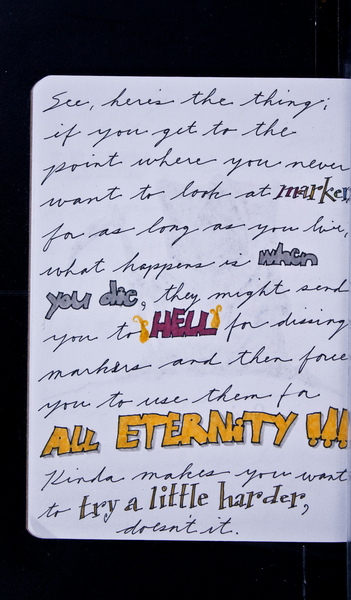 See, here's the thing;
if you get to the
point where you never
want to look at marker
for as long as you live,
what happens is when
you die, they might send
you to HELL for dissing
markers and then force
you to use them for
ALL ETERNITY !!!
Kinda makes you want
to try a little harder,
doesn't it.